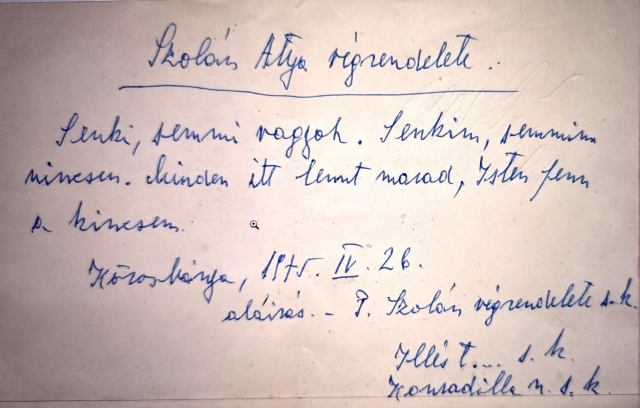 Szolán Atya végrendelete.
Senki, semmi vagyok. Senkim, semmim
nincsen. Minden itt lennt marad, Isten fenn
a kincsem.
Kőröshánya, 1975. IV. 26.
aláírás. - P. Szolán végrendelete s.k.
Illés t... s. k.
Konradilla n. s. k.